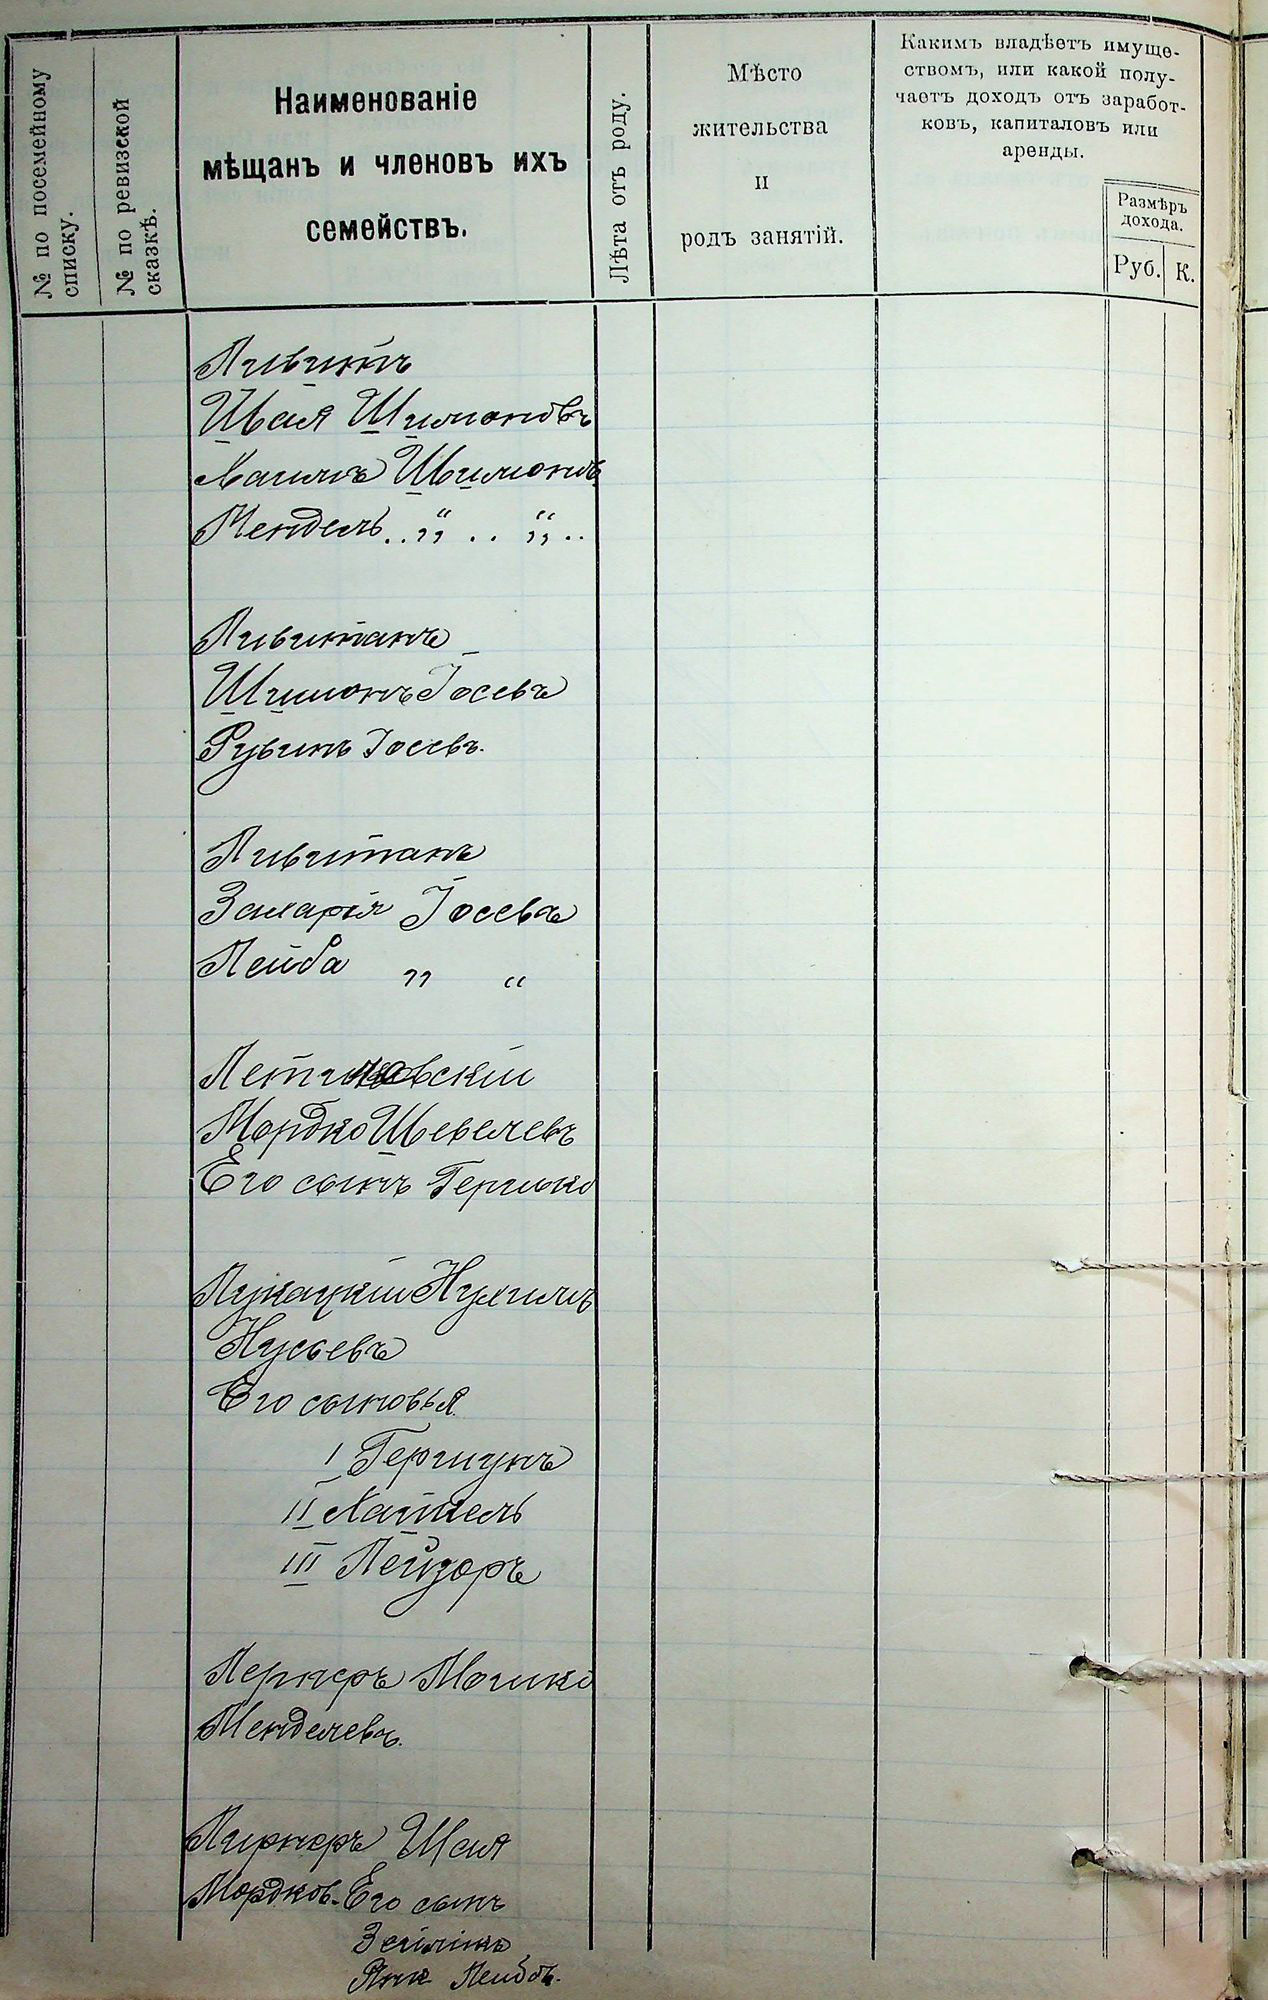 № по посемейному
списку.
№ по ревизской
сказкѣ.
Наименованіе
мѣщанъ и членовъ ихъ
семействъ.
Лѣта отъ роду.
Мѣсто
жительства
и
родъ занятій.
Какимъ владѣетъ имуще-
ствомъ, или какой полу-
чаетъ доходъ отъ заработ-
ковъ, капиталовъ или
аренды.
Размѣръ
дохода.
Руб.
К.
Ливитъ
Шая Шимоновъ
Хаимъ Шимоновъ
Мендель .. „ “ .. „ “ ..
Ливитанъ
Шимонъ Іосевъ
Рувинъ Іосевъ.
Ливитанъ
Захарія Іосевъ
Лейба „ “
Мордко Шевелевъ
Его сынъ Гершко
Лукацкій Нухимъ
Нусьевъ
Его сыновья
I Гершунъ
II Хацкель
III Лейзоръ
Лернеръ Мошко
Менделевъ.
Лирнеръ Шая
Мордков. Его сынъ
Лейбов.